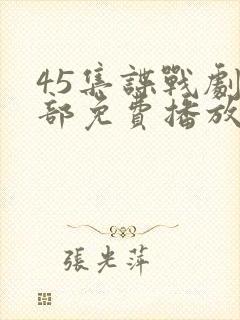 45集諜戰劇
部免費播放
張光萍